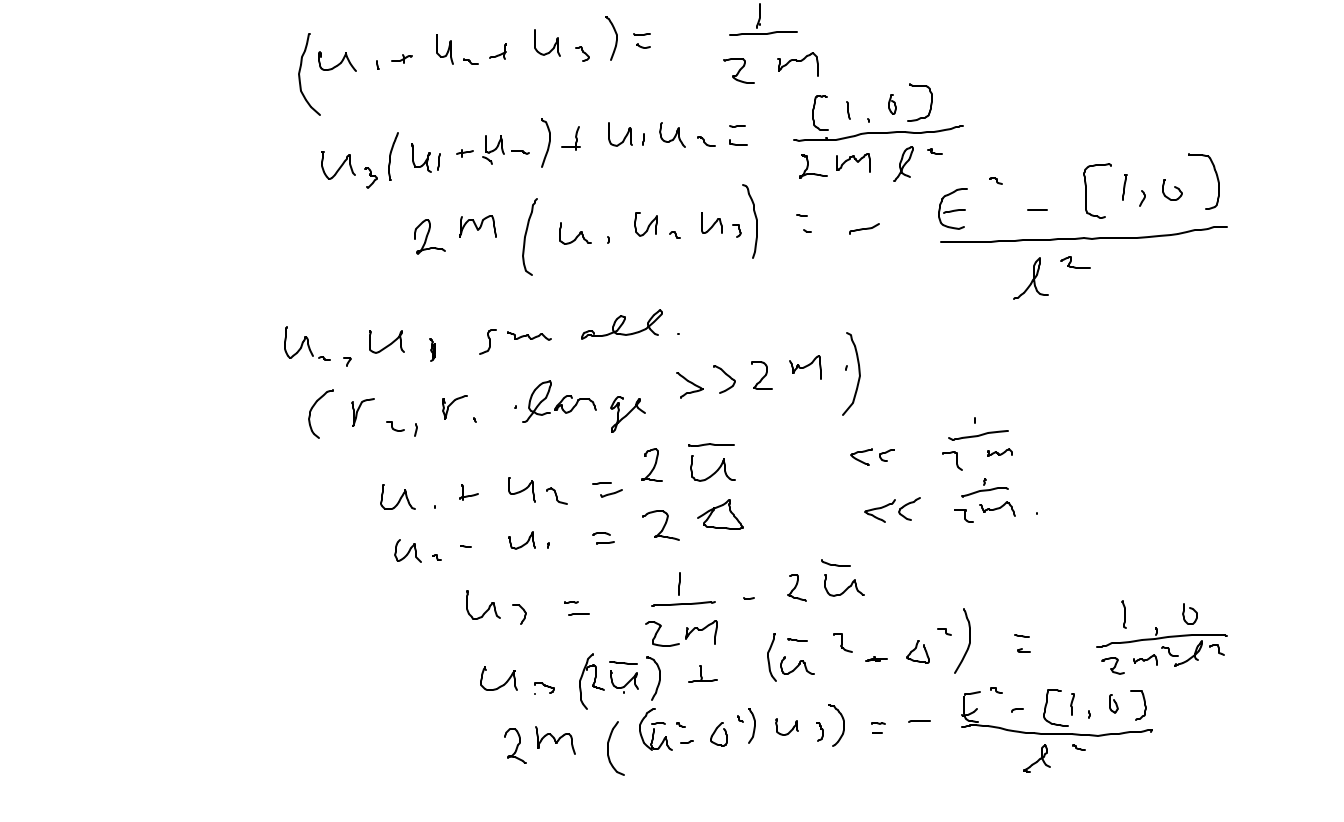 (u₁ + u₂ + u₃) = 1/2m
u₃(u₁ + u₂) + u₁u₂ = [1,0]/2m l²
2m(u₁ u₂ u₃) = - E² - [1,0] / l²
u₂, u₁ small.
(r₂, r₁ large >> 2m.)
u₁ + u₂ = 2ū << 1/2m
u₂ - u₁ = 2Δ << 1/2m.
u₃ = 1/2m - 2ū
u₃(2ū) + (ū² - Δ²) = 1,0 / 2m²l²
2m((ū² - Δ²)u₃) = - E² - [1,0] / l²